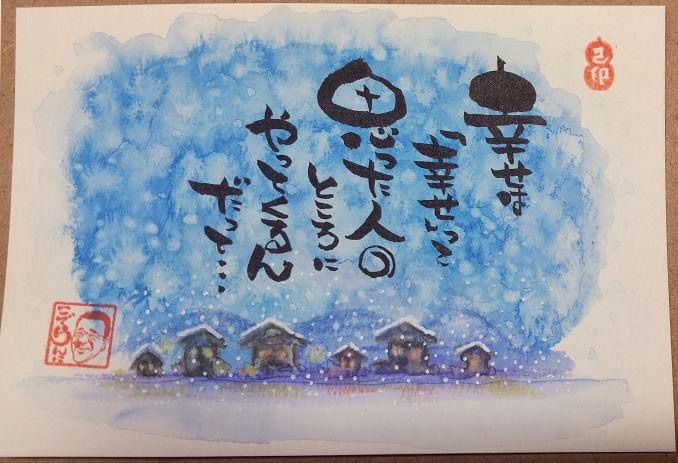 幸せは
「幸せ」って
思った人の
ところに
やってくるん
だって…